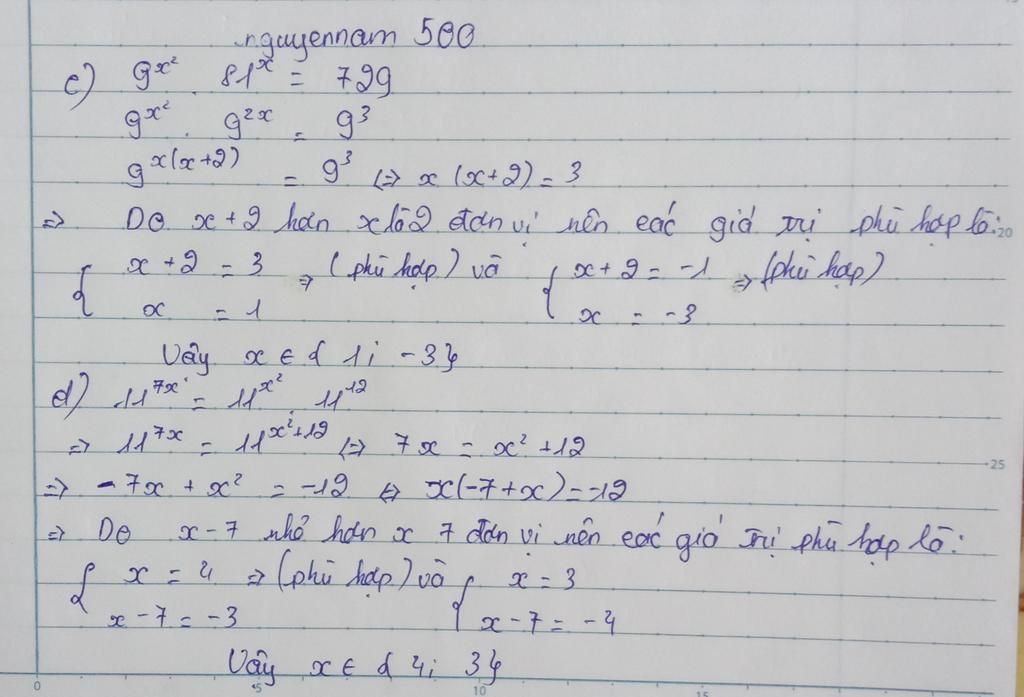 nguyennam 500
c) 9^x² . 81^x = 729
9^x² . 9^2x = 9³
9^x(x+2) = 9³ <=> x (x+2) = 3
=> Do x+2 hơn x là 2 đơn vị nên các giá trị phù hợp là: 20
{ x+2 = 3 => (phù hợp) và { x+2 = -1 => (phù hợp)
x = 1 x = -3
Vậy x ∈ { 1; -3}
d) 11^7x = 11^x² . 11^12
=> 11^7x = 11^x²+12 <=> 7x = x² +12
25
=> -7x + x² = -12 <=> x(-7+x) = -12
=> Do x-7 nhỏ hơn x 7 đơn vị nên các giá trị phù hợp là:
{ x = 4 => (phù hợp) và { x = 3
x-7 = -3 x-7 = -4
Vậy x ∈ { 4; 3}
0 5 10 15